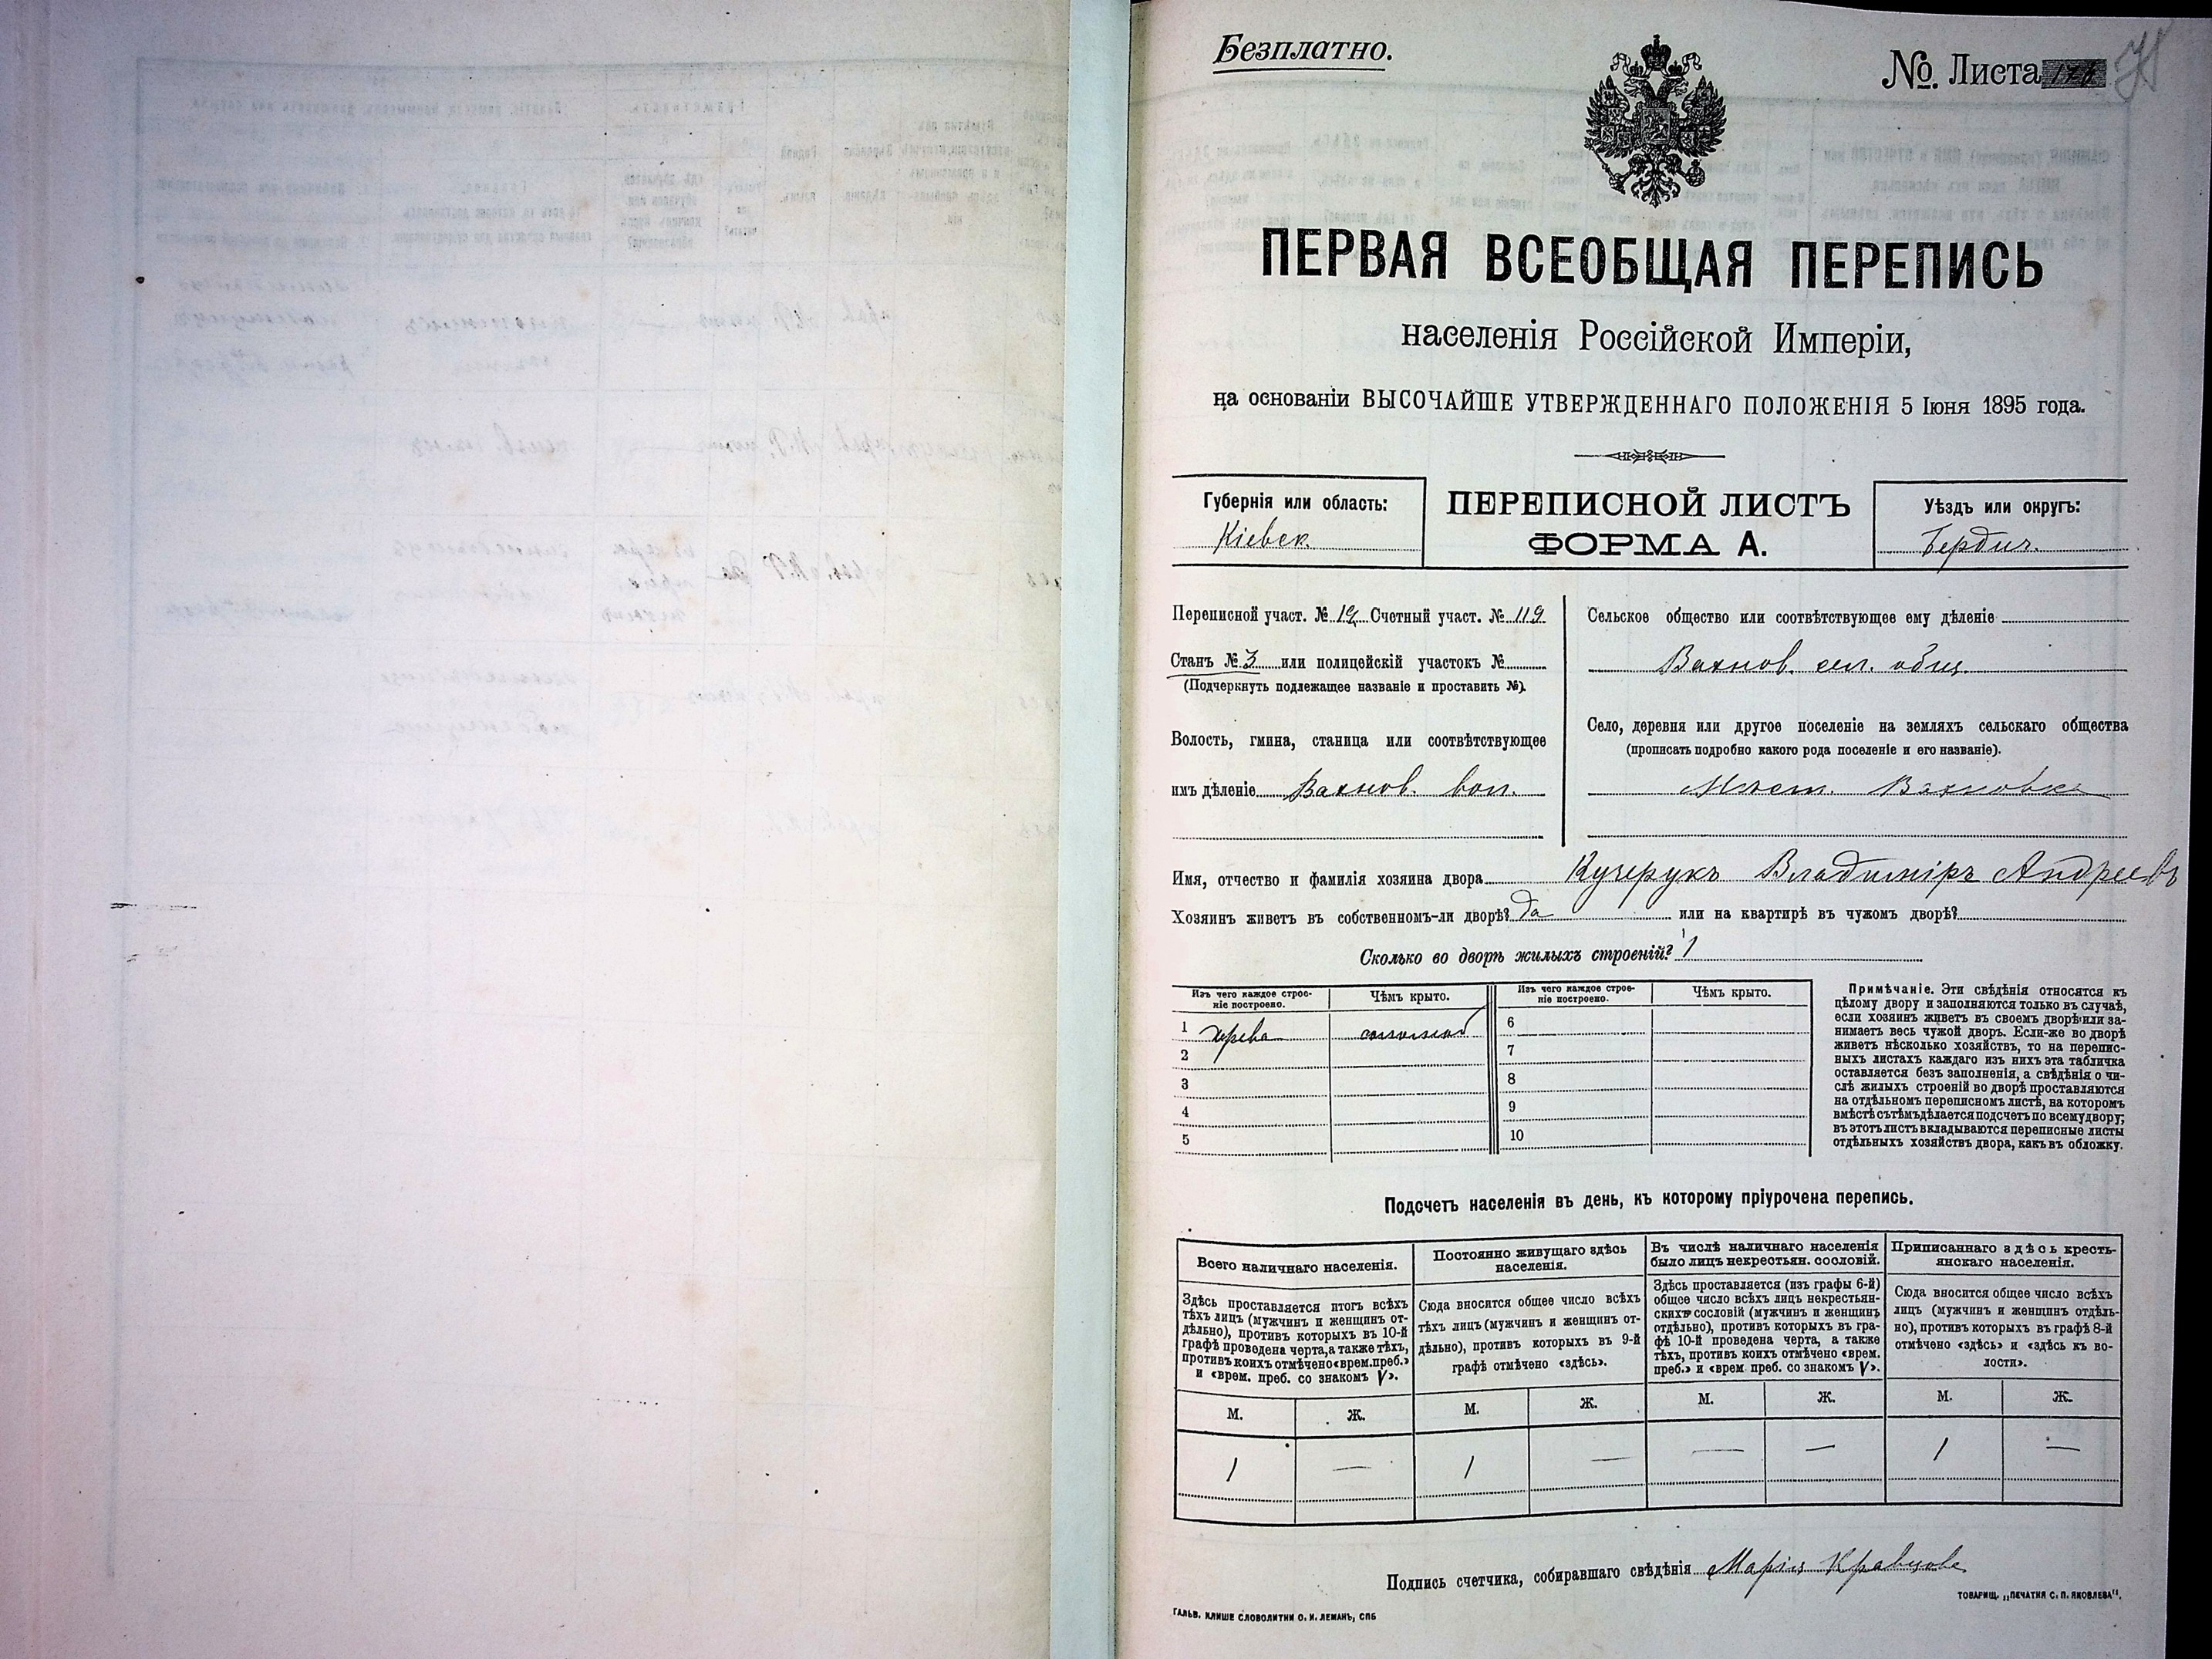 Безплатно.
№ Листа
ПЕРВАЯ ВСЕОБЩАЯ ПЕРЕПИСЬ
населенія Россійской Имперіи,
на основаніи ВЫСОЧАЙШЕ УТВЕРЖДЕННАГО ПОЛОЖЕНІЯ 5 Іюня 1895 года.
Губернія или область:
Кіевск.
ПЕРЕПИСНОЙ ЛИСТЪ
ФОРМА А.
Уѣздъ или округъ:
Бердич.
Переписной участ. № Счетный участ. № 119
Станъ № 3 или полицейскій участокъ №
(Подчеркнуть подлежащее названіе и проставить №).
Волость, гмина, станица или соотвѣтствующее
имъ дѣленіе Вахнов. вол.
Сельское общество или соотвѣтствующее ему дѣленіе
Вахнов. сел. общ.
Село, деревня или другое поселеніе на земляхъ сельскаго общества
(прописать подробно какого рода поселеніе и его названіе).
Мѣст. Вахновка
Имя, отчество и фамилія хозяина двора Кучерукъ Владиміръ Андреевъ
Хозяинъ живетъ въ собственномъ-ли дворѣ? да или на квартирѣ въ чужомъ дворѣ?
Сколько во дворѣ жилыхъ строеній? 1
Изъ чего каждое строе-
ніе построено.
Чѣмъ крыто.
1 дерева соломой
2
3
4
5
Изъ чего каждое строе-
ніе построено.
Чѣмъ крыто.
6
7
8
9
10
Примѣчаніе. Эти свѣдѣнія относятся къ
цѣлому двору и заполняются только въ случаѣ,
если хозяинъ живетъ въ своемъ дворѣ или за-
нимаетъ весь чужой дворъ. Если-же во дворѣ
живетъ нѣсколько хозяйствъ, то на перепис-
ныхъ листахъ каждаго изъ нихъ эта табличка
оставляется безъ заполненія, а свѣдѣнія о чи-
слѣ жилыхъ строеній во дворѣ проставляются
на отдѣльномъ переписномъ листѣ, на которомъ
вмѣстѣ съ тѣмъ дѣлается подсчетъ по всему двору;
въ этотъ листъ вкладываются переписные листы
отдѣльныхъ хозяйствъ двора, какъ въ обложку.
Подсчетъ населенія въ день, къ которому пріурочена перепись.
Всего наличнаго населенія.
Здѣсь проставляется итогъ всѣхъ
тѣхъ лицъ (мужчинъ и женщинъ от-
дѣльно), противъ которыхъ въ 10-й
графѣ проведена черта, а также тѣхъ,
противъ коихъ отмѣчено «врем. преб.»
и «врем. преб. со знакомъ V».
М. Ж.
1 —
Постоянно живущаго здѣсь
населенія.
Сюда вносится общее число всѣхъ
тѣхъ лицъ (мужчинъ и женщинъ от-
дѣльно), противъ которыхъ въ 9-й
графѣ отмѣчено «здѣсь».
М. Ж.
1 —
Въ числѣ наличнаго населенія
было лицъ некрестьян. сословій.
Здѣсь проставляется (изъ графы 6-й)
общее число всѣхъ лицъ некрестьян-
скихъ сословій (мужчинъ и женщинъ
отдѣльно), противъ которыхъ въ гра-
фѣ 10-й проведена черта, а также
тѣхъ, противъ коихъ отмѣчено «врем.
преб.» и «врем. преб. со знакомъ V».
М. Ж.
— —
Приписаннаго здѣсь кресть-
янскаго населенія.
Сюда вносится общее число всѣхъ
лицъ (мужчинъ и женщинъ отдѣль-
но), противъ которыхъ въ графѣ 8-й
отмѣчено «здѣсь» и «здѣсь къ во-
лости».
М. Ж.
1 —
Подпись счетчика, собиравшаго свѣдѣнія Марія Кравцова
ГАЛЬВ. КЛИШЕ СЛОВОЛИТНИ О. И. ЛЕМАНЪ, СПБ
ТОВАРИЩ. „ПЕЧАТНЯ С. П. ЯКОВЛЕВА".